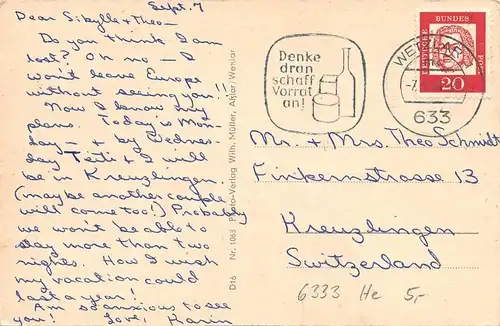 Sept. 7
Dear Sibylle + Theo –
Do you think I am
lost? Oh no – I
won't leave Europe
without seeing you!!
Now I know my
plans. Today is Mon-
day – + by Wednes-
day Teiti + I will
be in Kreuzlingen.
(maybe another couple
will come too!) Probably
we won't be able to
stay more than two
nights. How I wish
my vacation could
last a year!
Am so anxious to see
you! Love, Karin
D16 Nr. 1063 Photo-Verlag Wilh. Müller, Aßlar/Wetzlar
Denke
dran
schaff
Vorrat
an!
WETZLAR
-7.
633
DEUTSCHE
BUNDES
POST
20
Mr. + Mrs. Theo Schmidt
Finkernstrasse 13
Kreuzlingen
Switzerland
6333 He 5,-